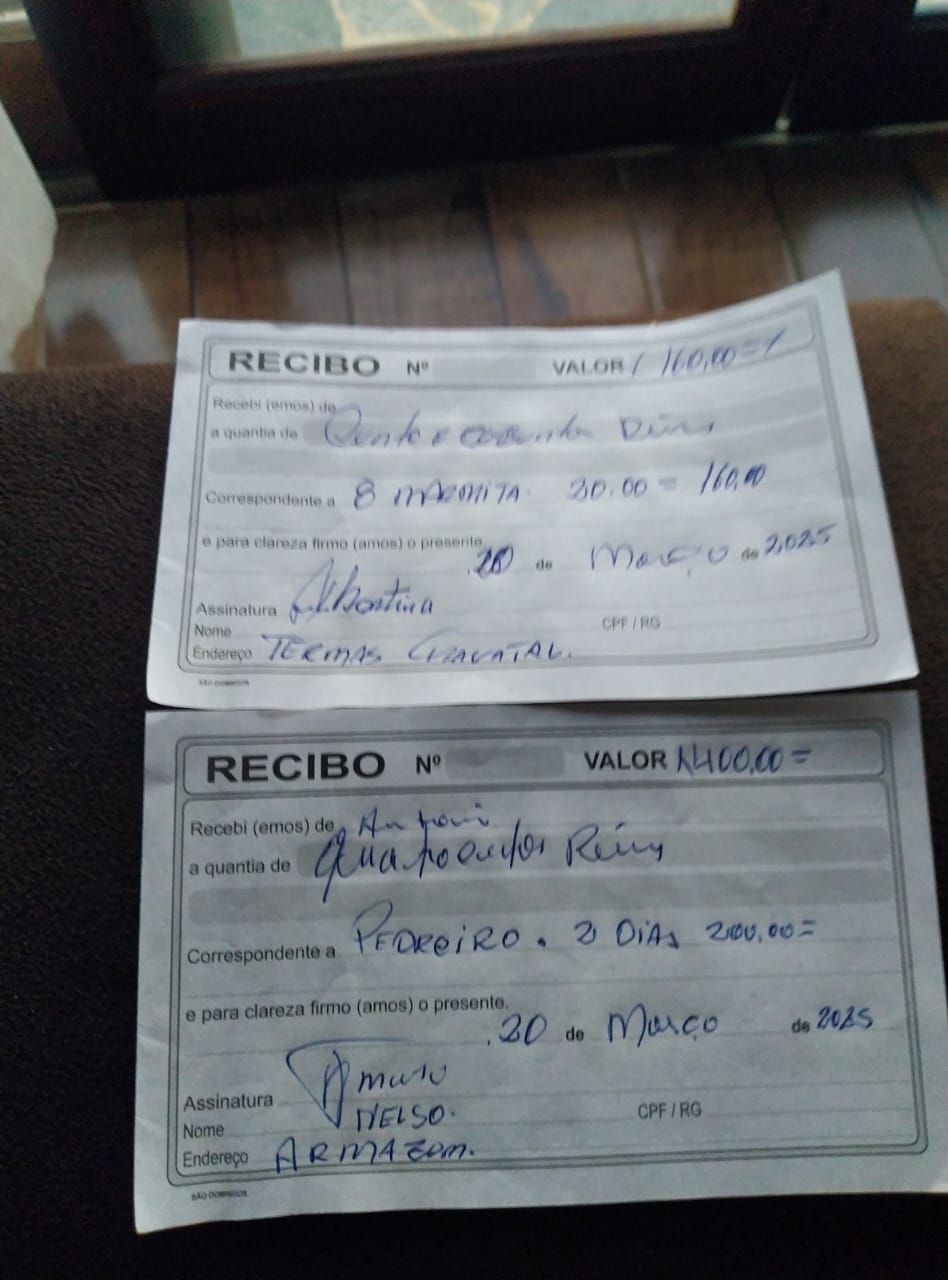 RECIBO Nº VALOR 160,00=
Recebi (emos) de
a quantia de Cento e cecenta Reis
Correspondente a 8 MARMITA. 20.00 = 160,00
e para clareza firmo (amos) o presente.
20 de Março de 2.025
Assinatura
Nome CPF / RG
Endereço TERMAS GRAVATAL.
SÃO DOMINGOS
RECIBO Nº VALOR 400,00=
Recebi (emos) de Antoni
a quantia de Reis
Correspondente a PEDREIRO. 2 DIAS 200,00=
e para clareza firmo (amos) o presente.
20 de Março de 2025
Assinatura
Nome NELSO. CPF / RG
Endereço ARMAZEM.
SÃO DOMINGOS